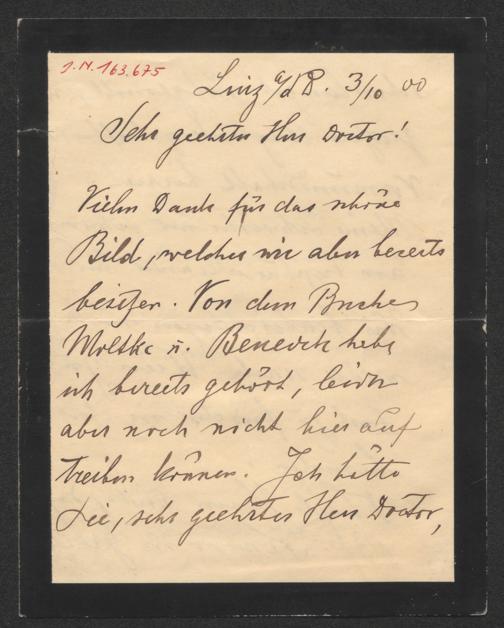 J.N. 163.675
Linz a/d D. 3/10 00
Sehr geehrter Herr Doctor!
Vielen Dank für das schöne
Bild, welches wir aber bereits
besitzen. Von dem Buche
Moltke u. Benedek habe
ich bereits gehört, leider
aber noch nicht hier auf
treiben können. Ich hätte
Sie, sehr geehrter Herr Doctor,